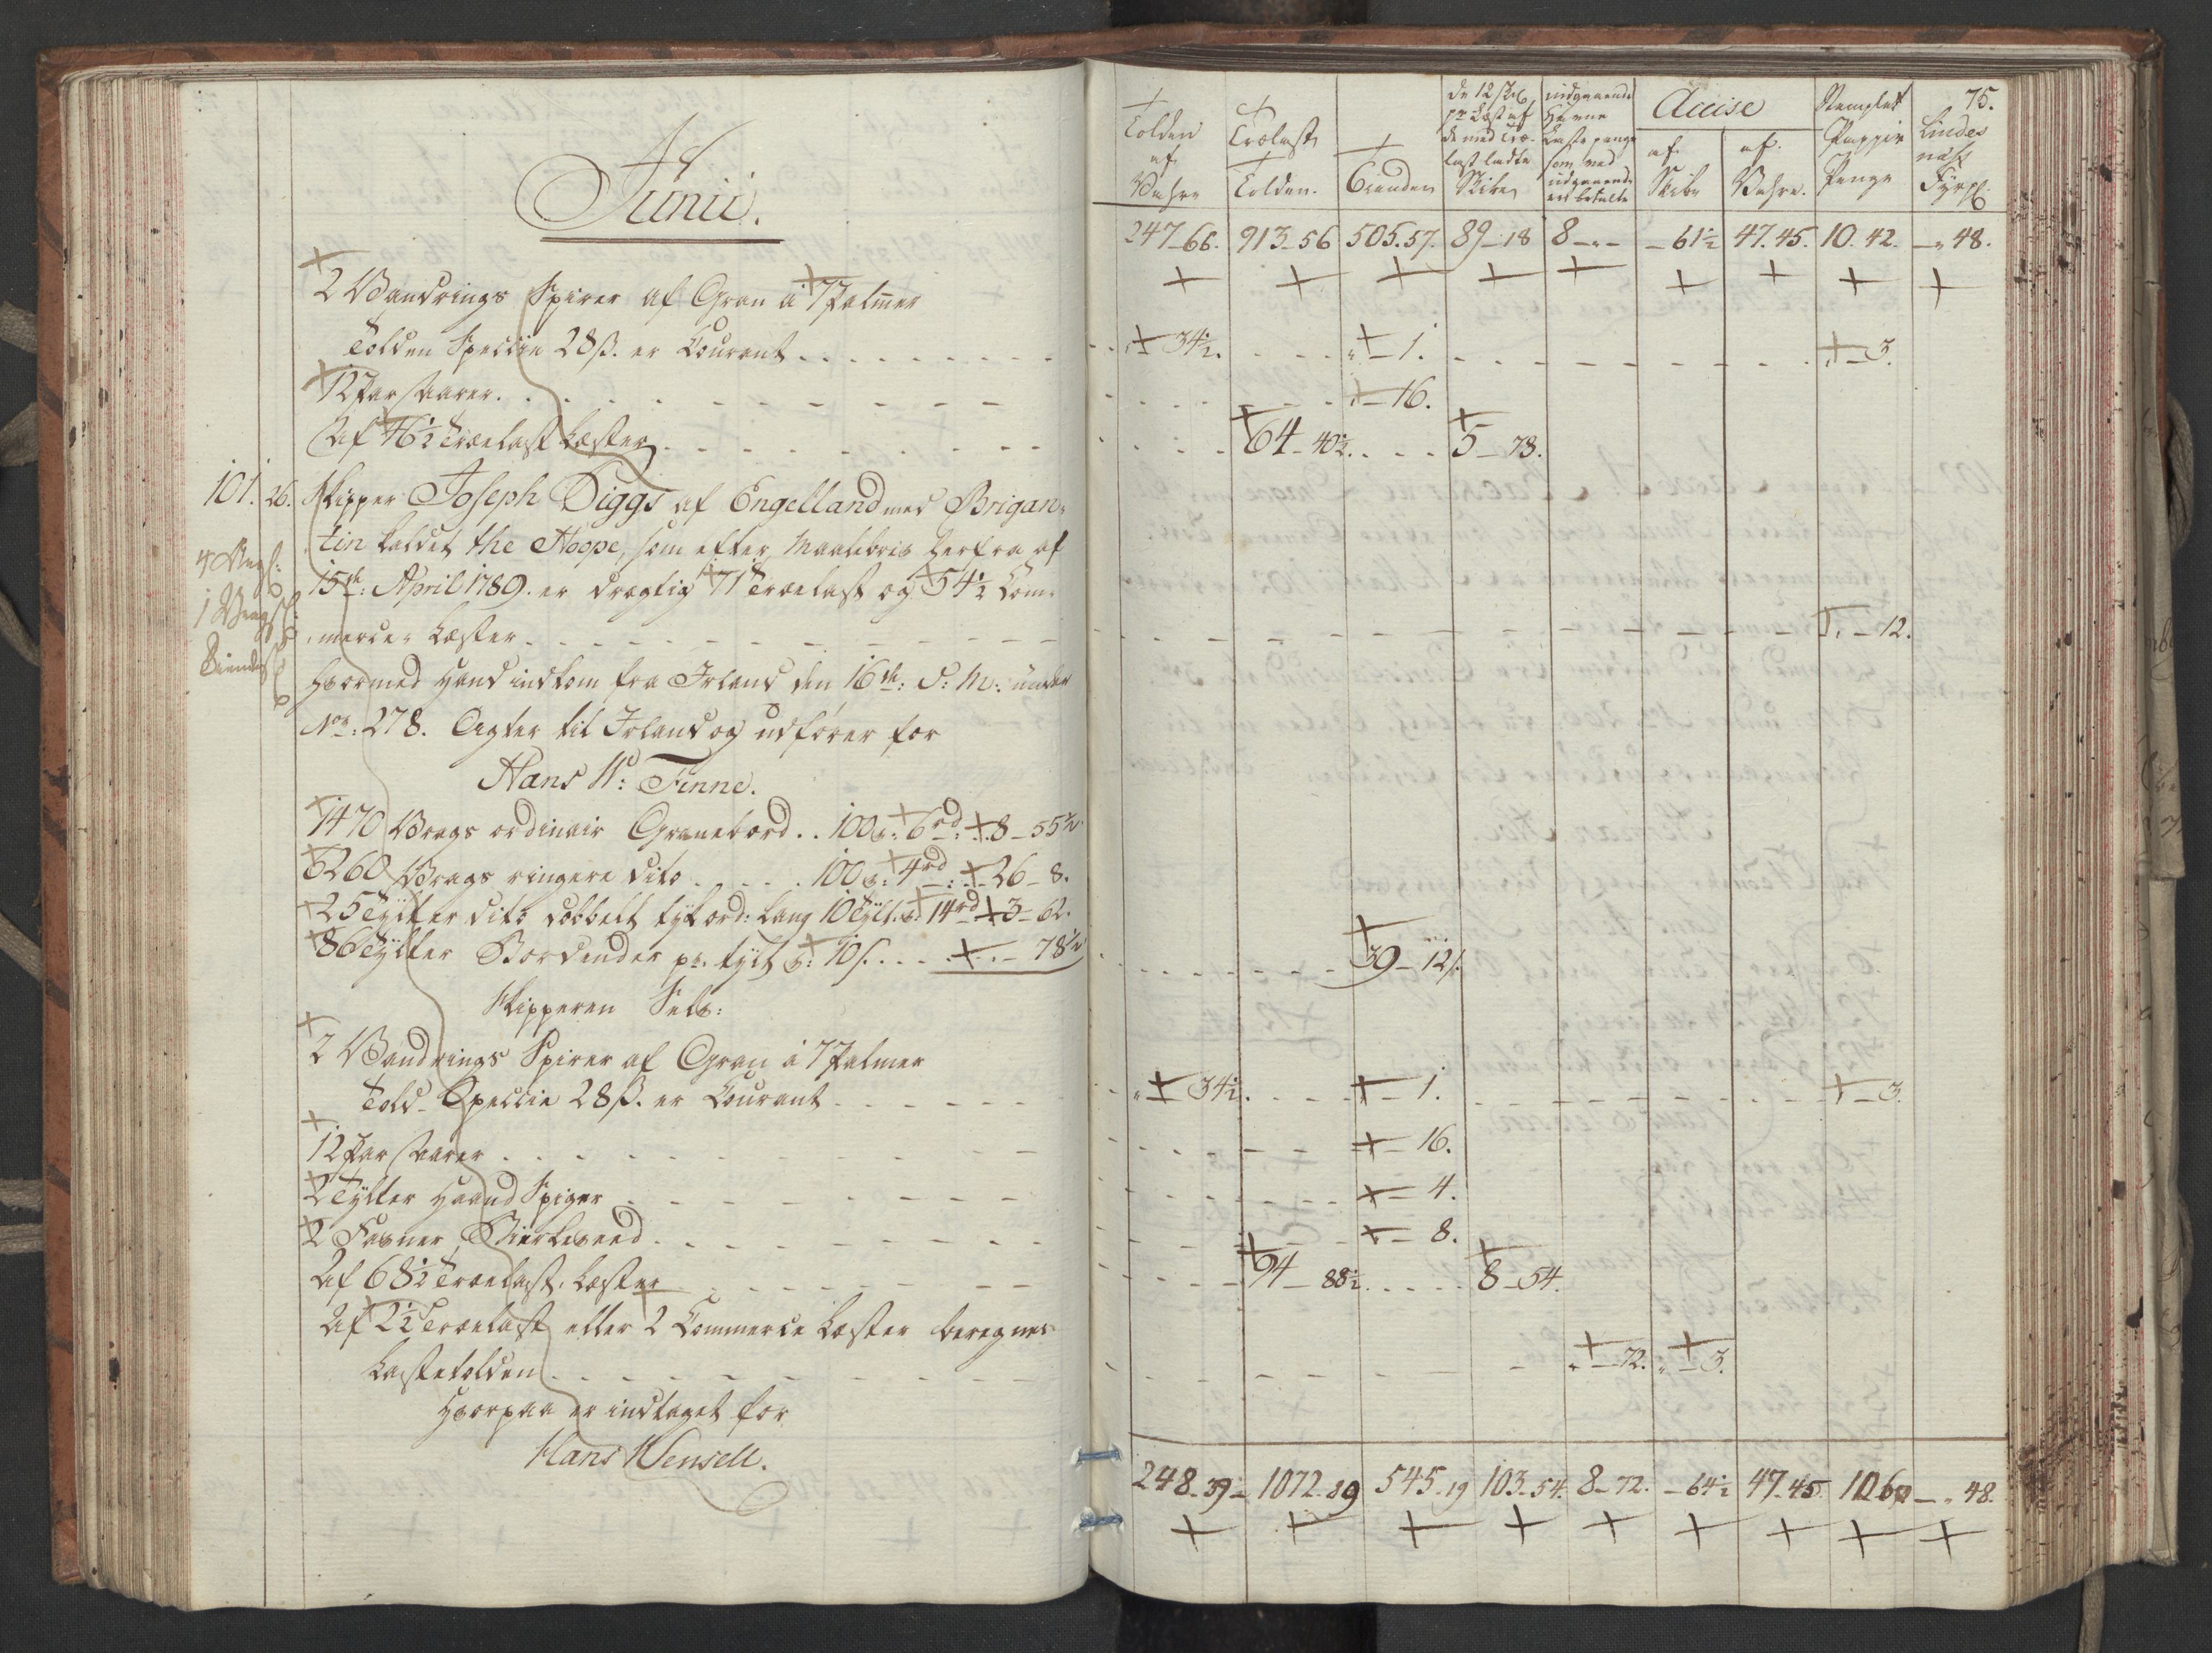 Junii.
2 Vandrings Spirer af Gran a 7 Palmer
Tolden Speccie 28 ß. er Courant
12 Par Aarer.
Af 46½ Trælast Læster
101. 26. Skipper Joseph Diggs af Engelland med Brigan-
tin kaldet the Hoope, som efter Maalebrev herfra af
15de: April 1789. er drægtig 71 Trælast og 54½ Com-
merce Læster
Hvormed Hand indkom fra Irland den 16de: d: M: under
No: 278. Agter til Irland og udfører for
Hans W: Finne.
1470 Vrags ordinair Granebord .. 100 6rd: 8-55½
6260 Vrags ringere dito 100 4rd: 26-8.
25 Tylter dito dobbelt tyk ord: Lang 10 Tylt 14rd 3-62.
86 Tylter Bordender pr. tylt 10 s. 78½
Skipperen Selv:
2 Vandrings Spirer af Gran á 7 Palmer
Told Speccie 28 ß. er Courant
12 Par Aarer
2 Tylter Haand Spiger
2 Favner Birkeveed
Af 68½ Trælast Læster
Af 2½ Trælast eller 2 Commerce Læster beregnes
Lastetolden
Hvorpaa er indtaget for
Hans Wensell.
75.
Tolden af Vahre
Trælast Tolden.
Tienden
de 12 pr Læst af de med Træ-last ladte Skibe
udgaaende Lastepenge som ved udgaaende er betalte
Accise
af Skibe
af Vahre.
Stemplet Pappir Penge
Lindes næs Fyr
247-66. 913-56 505.57. 89-18 8-"- -61½ 47.45. 10.42. -"48.
"-34½. "-1. "-3.
"-16.
64-40½. 5-78.
"-12.
39-12½
"-34½. -1. -3.
-16.
-4.
-8.
94-88½ 8-54.
"-72. "-3.
248-39- 1072-89 545-19 103-54. 8-72. -64½ 47-45 10 60 -"48.